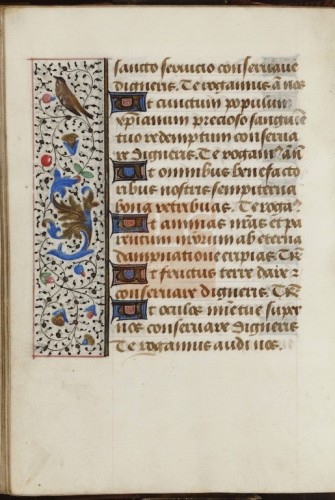 sancto servicio conservare
digneris. Te rogamus a nos
Ut cunctum populum
xpianum precioso sanguine
tuo redemptum conserva
re digneris. Te rogam. an
Ut omnibus benefacto
ribus nostris sempiterna
bona retribuas. Te roga.
Ut animas nras et pa
rentum nrorum ab eterna
dampnatione eripias. Te
Ut fructus terre dare z
conservare digneris. Te
Ut oculos mie tue super
nos conservare digneris
Te rogamus audi nos.